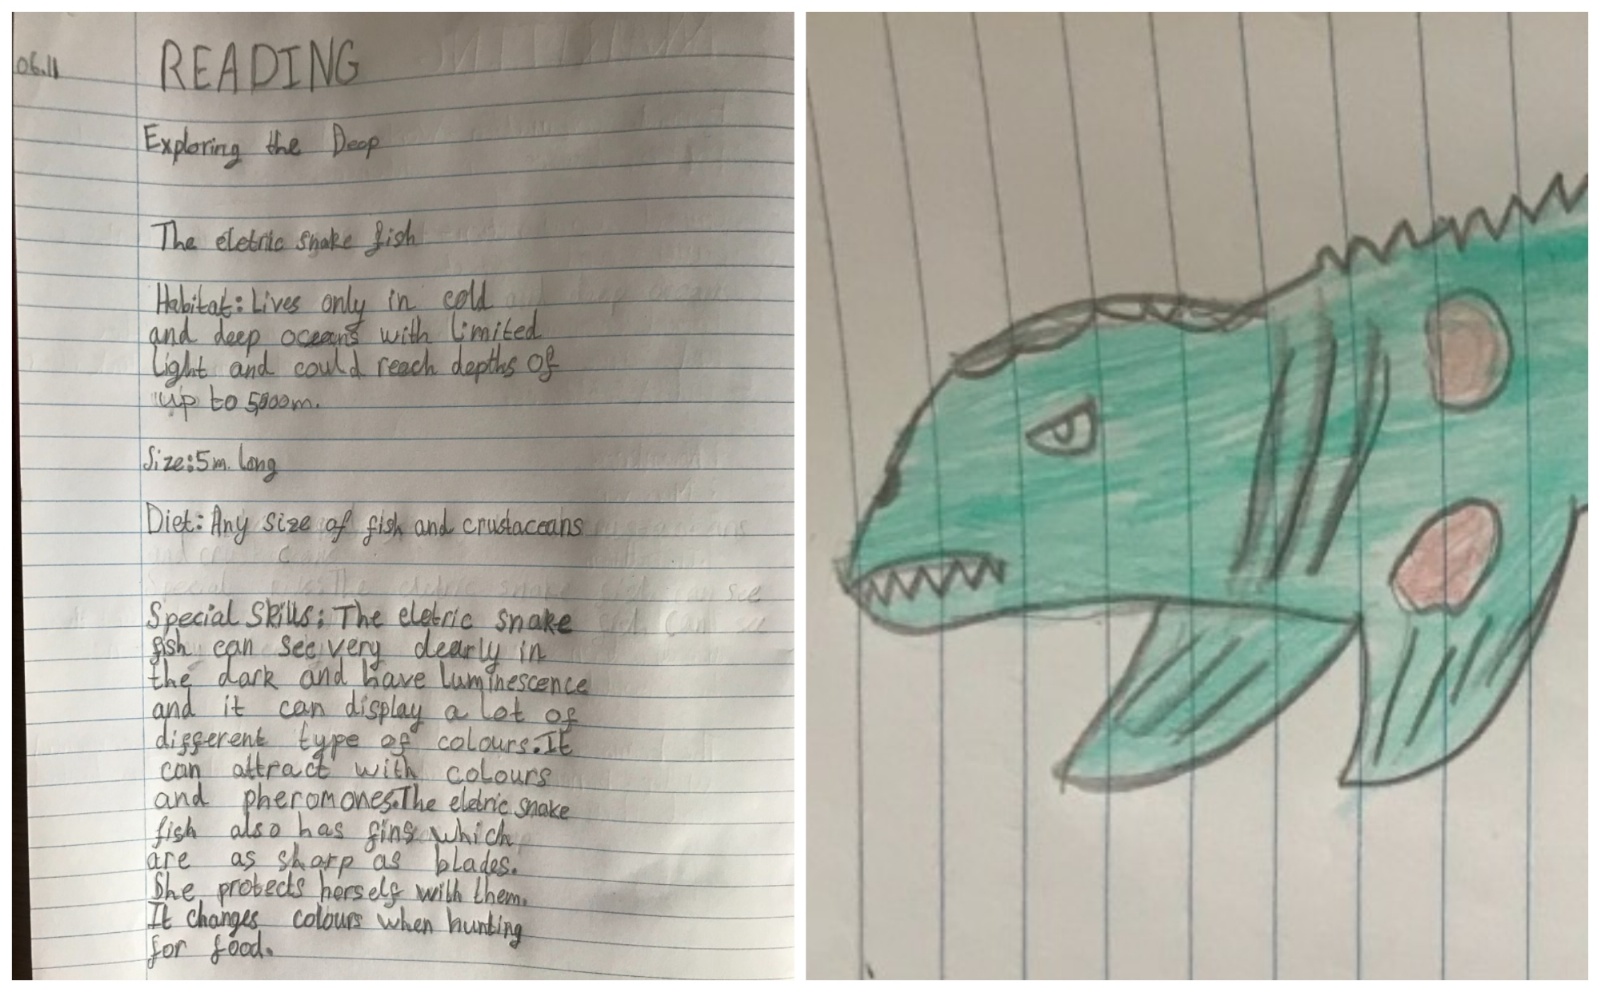 06.11
READING
Exploring the Deep
The eletric snake fish
Habitat: Lives only in cold
and deep oceans with limited
light and could reach depths of
up to 5,000m.
Size: 5 m. long
Diet: Any size of fish and crustaceans
Special Skills: The eletric snake
fish can see very clearly in
the dark and have luminescence
and it can display a lot of
different type of colours. It
can attract with colours
and pheromones. The eletric snake
fish also has fins which
are as sharp as blades.
She protects herself with them.
It changes colours when hunting
for food.